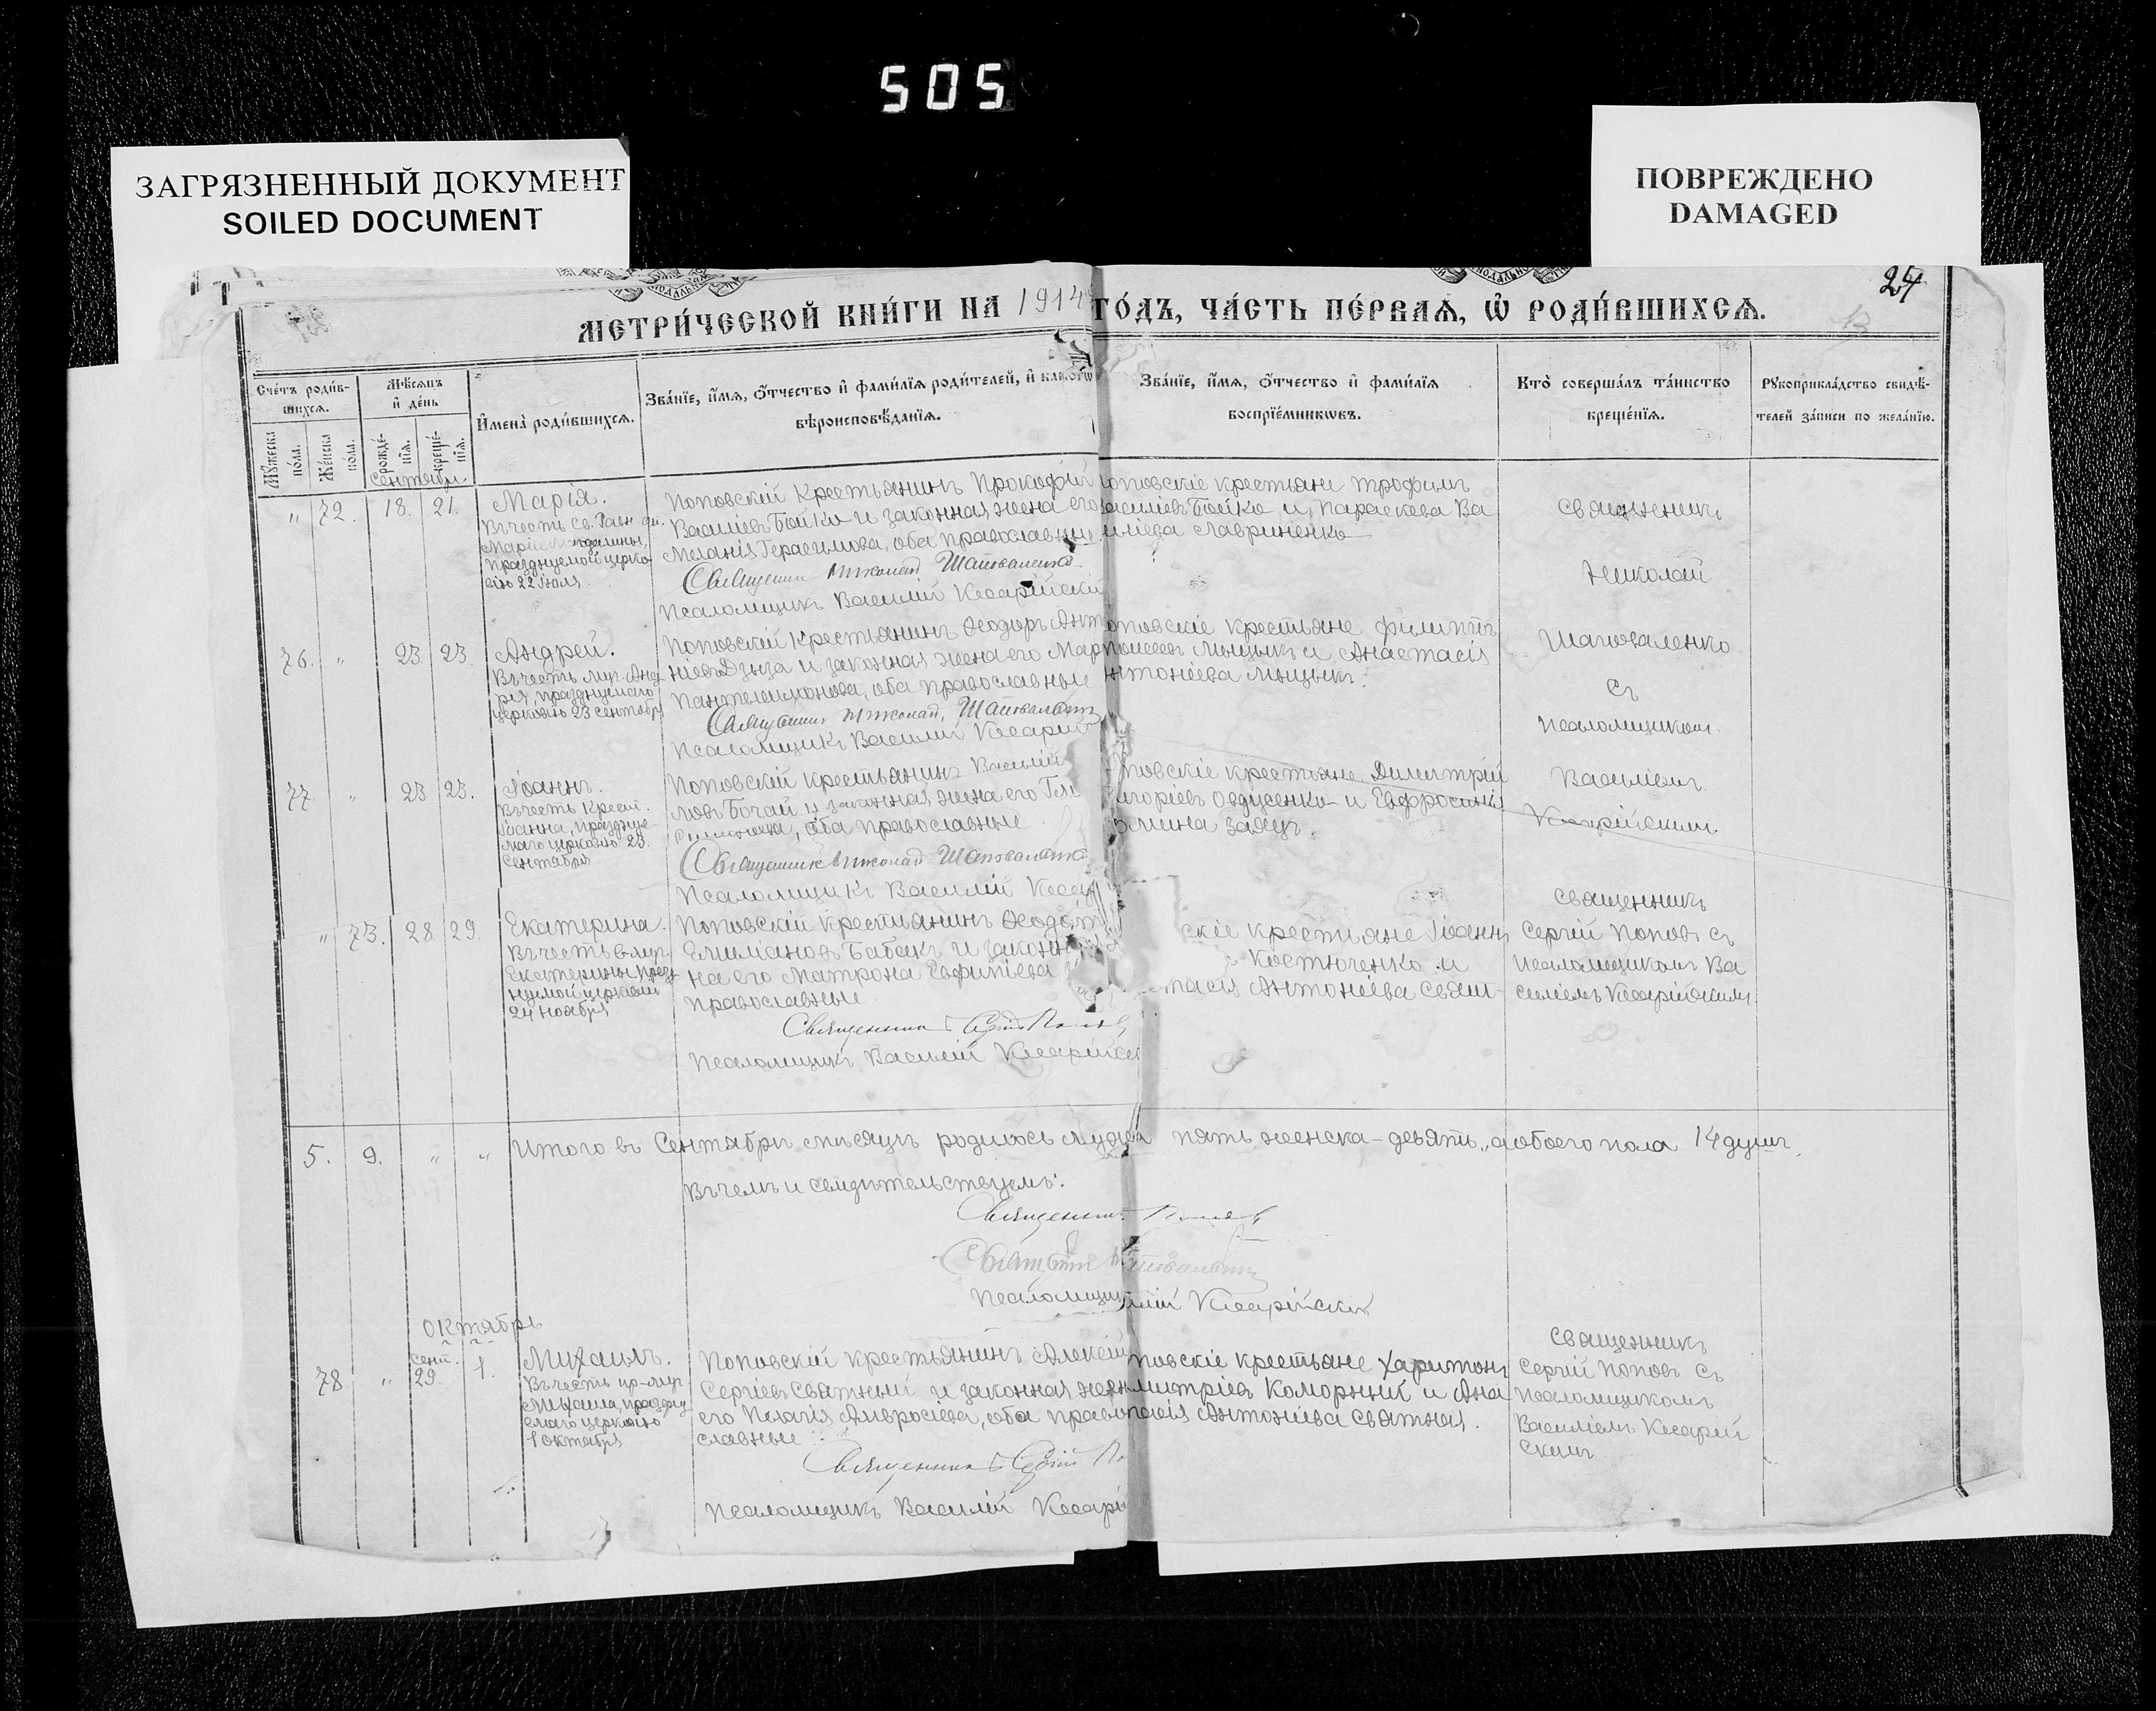 505
ЗАГРЯЗНЕННЫЙ ДОКУМЕНТ
SOILED DOCUMENT
ПОВРЕЖДЕНО
DAMAGED
24
МЕТРИ́ЧЕСКОЙ КНИ́ГИ НА 1914 ГО́ДЪ, ЧА́СТЬ ПЕ́РВАѦ, Ѡ҆ РОДИ́ВШИХСѦ.
Сче́тъ роди́в-
шихсѧ.
Мꙋ́жеска по́ла.
Же́нска по́ла.
Мѣ́сѧцъ
и҆ де́нь
рожде́-
нїѧ.
креще́-
нїѧ.
И҆мена̀ роди́вшихсѧ.
Зва́нїе, и҆́мѧ, ѻ҆́тчество и҆ фами́лїѧ роди́телей, и҆
вѣроисповѣ́данїѧ.
Зва́нїе, и҆́мѧ, ѻ҆́тчество и҆ фами́лїѧ
воспрїе́мникѡвъ.
Кто̀ соверша́лъ та́инство
креще́нїѧ.
Рꙋкоприкла́дство свидѣ́-
телей за́писи по жела́нїю.
Сентябрь.
" 72. 18. 21.
Марія.
Въ честь св. Равн-ап.
Маріи Магдалины,
празднуемой церко-
вію 22 Іюля.
Поповскій крестьянинъ Прокофій
Василіевъ Бойко и законная жена его
Меланія Герасимова, оба православные
Священникъ Николай Шаповаленко
Псаломщикъ Василій Кесарійскій
оповскіе крестьяне Трофимъ
Василіевъ Бойко и Параскева Ва
иліева Лавриненко
Священникъ
Николай
Шаповаленко
съ
псаломщикомъ
Василіемъ
Кесарійскимъ.
76. " 23. 23.
Андрей.
Въ честь муч. Анд
рея, празднуемаго
церковію 23 сентября
Поповскій крестьянинъ Ѳеодоръ Анто
ніевъ Дзыза и законная жена его Мар
Пантелимонова, оба православные
Священникъ Николай Шаповаленко
Псаломщикъ Василій Кесарій
оповскіе крестьяне Филиппъ
Мыцыкъ и Анастасія
нтоніева Мыцыкъ.
77. " 23. 23.
Іоаннъ.
Въ честь Крест.
Іоанна, праздну-
маго церковію 23.
Сентября
Поповскій крестьянинъ Василій
ловъ Бочай и законная жена его
оба православные
Священникъ Николай Шаповаленко
Псаломщикъ Василій Кесар
повскіе крестьяне Димитрій
ригоріевъ Овдусенко и Евфросинія
омина Заяцъ.
" 73. 28. 29.
Екатерина.
Въ честь в-муч.
Екатерины празд
нуемой церковію
24 ноября
Поповскій крестьянинъ Ѳеодо
Емиліановъ Бабакъ и законн
на его Матрона Евфиміева
православные
Священникъ Сергій Поповъ
Псаломщикъ Василій Кесарійск
скіе крестьяне Іоаннъ
Костюченко и
тасія Антоніева Свят-
Священникъ
Сергій Поповъ съ
псаломщикомъ Ва
силіемъ Кесарійскимъ
5. 9. " " Итого въ Сентябрѣ мѣсяцѣ родилось мужска пять, женска - девять, а обоего пола 14 душъ.
Въ чемъ и свидѣтельствуемъ:
Священникъ Поповъ
Священникъ Шаповаленко
Псаломщикъ лій Кесарійскій
Октябрь
78. " сент. 29. 1.
Михаилъ.
Въ честь пр-муч
Михаила, праздну
емаго церковію
1 октября
Поповскій крестьянинъ Алексій
Сергіевъ Святный и законная жена
его Пелагія Амвросіева, оба право
славные
Священникъ Сергій По
Псаломщикъ Василій Кесарій
повскіе крестьяне Харитонъ
митріевъ Коморный и Ана
тасія Антоніева Святная.
Священникъ
Сергій Поповъ съ
псаломщикомъ
Василіемъ Кесарій
скимъ